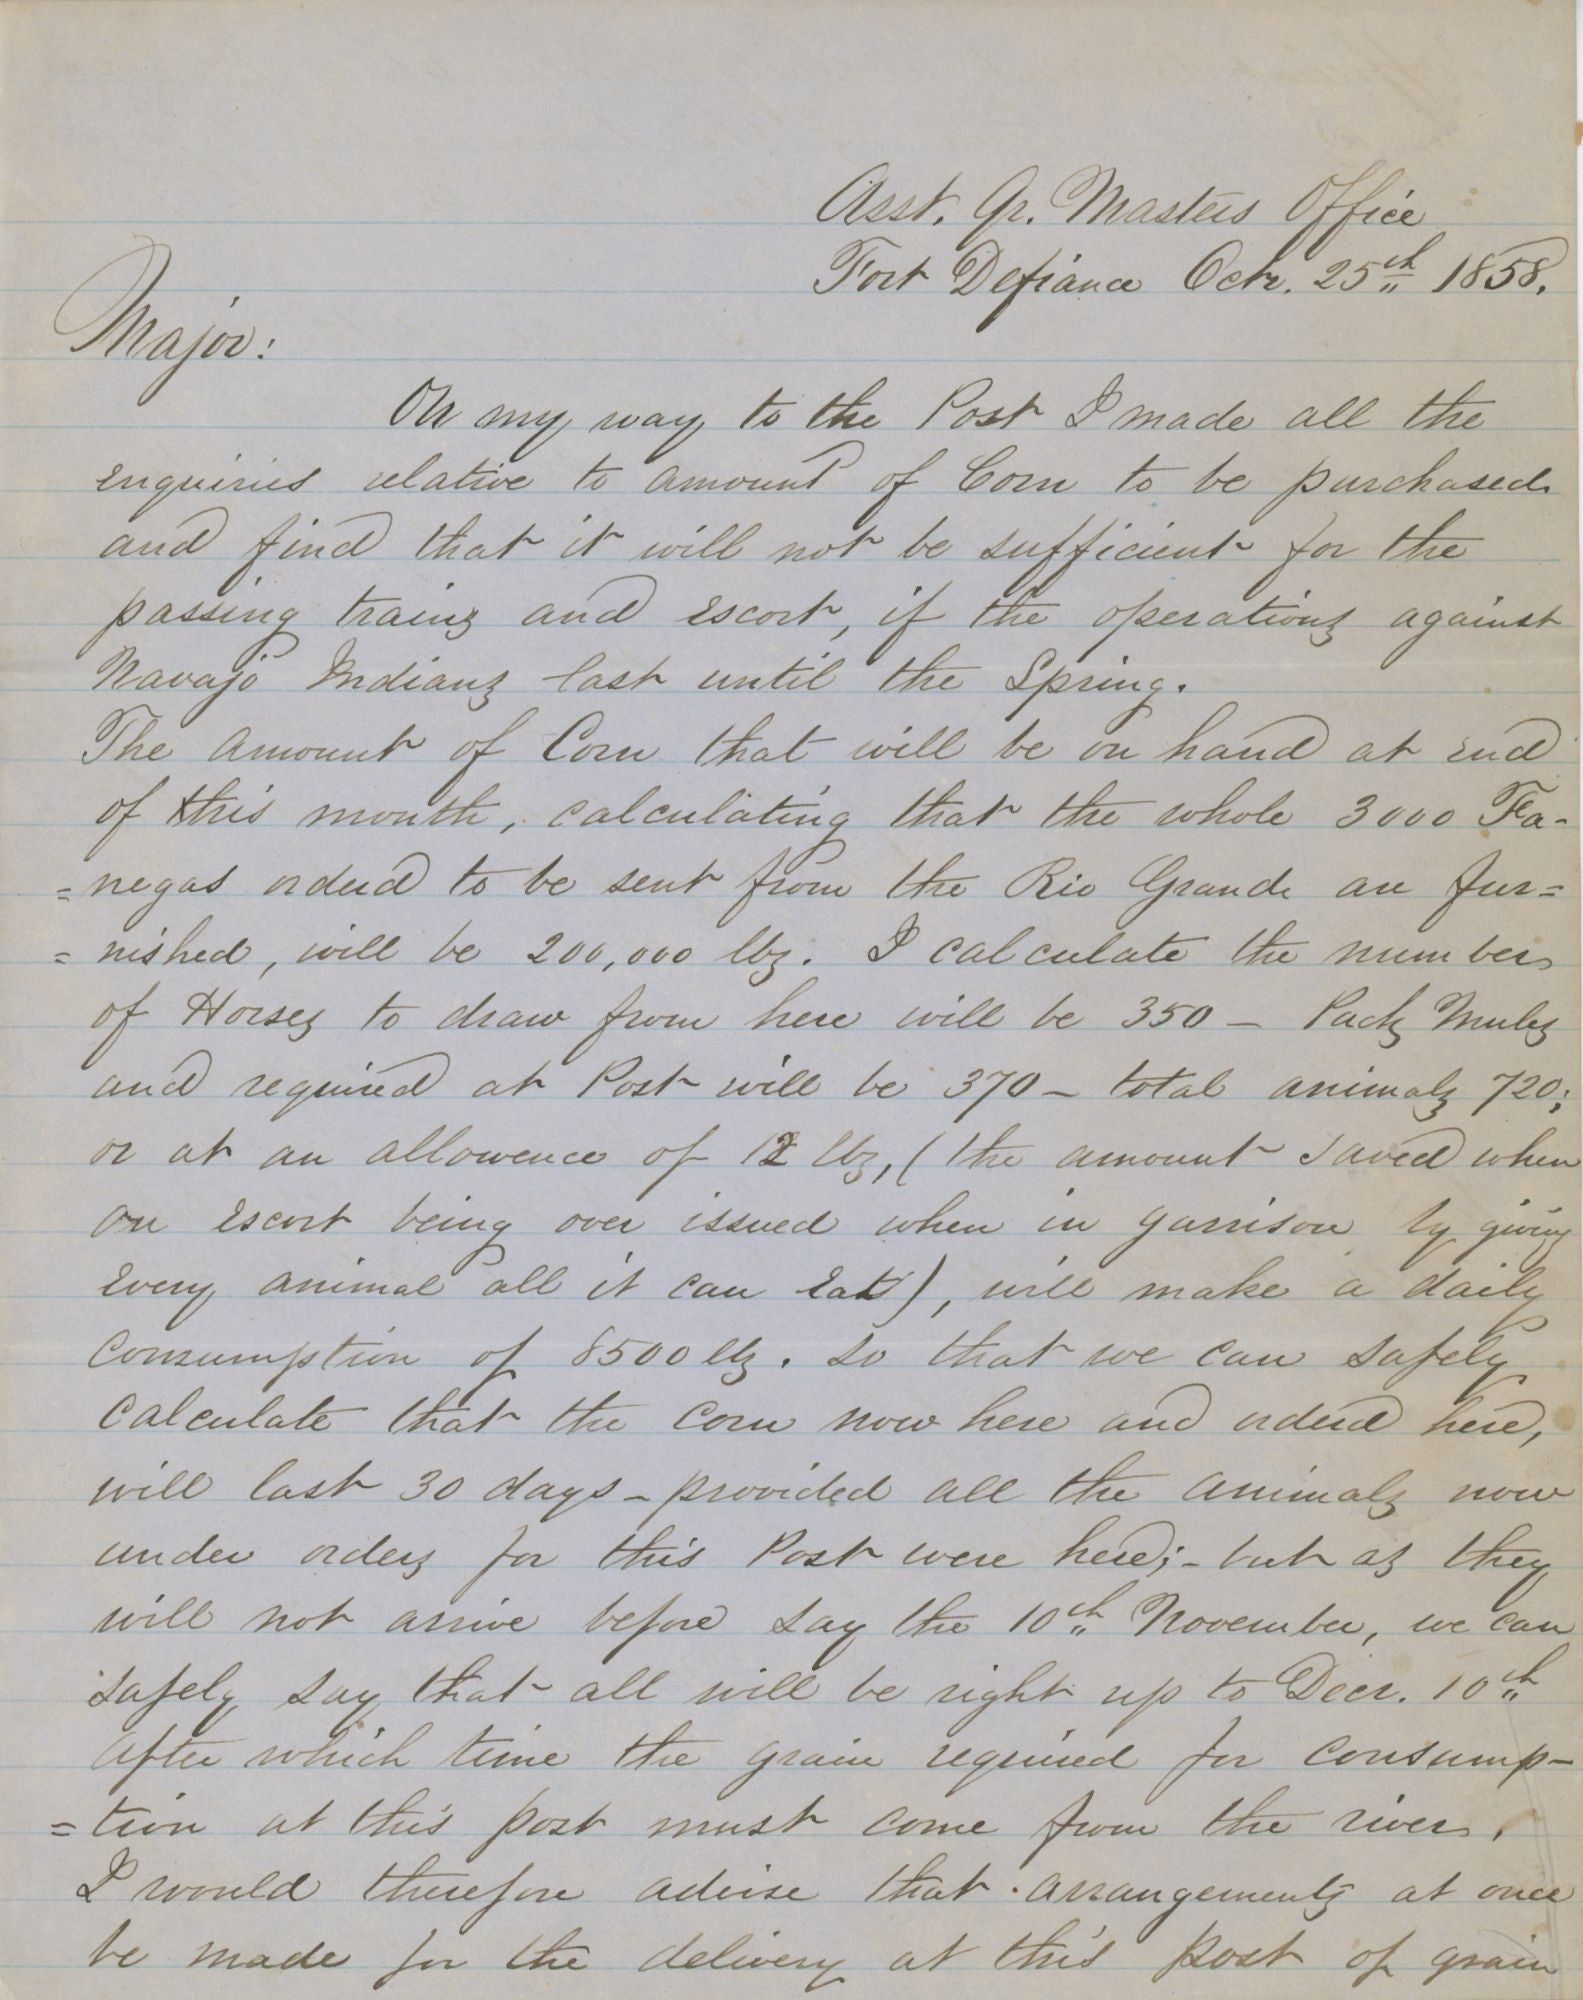 Asst. Qr. Masters Office
Fort Defiance Octr. 25th 1858.
Major:
On my way to the Post I made all the
enquiries relative to amount of Corn to be purchased
and find that it will not be sufficient for the
passing trains and escort, if the operations against
Navajo Indians last until the Spring.
The amount of Corn that will be on hand at end
of this month, calculating that the whole 3000 Fa-
=negas orderd to be sent from the Rio Grande are fur=
=nished, will be 200,000 lbs. I calculate the number
of Horses to draw from here will be 350 - Pack Mules
and required at Post will be 370 - total animals 720;
or at an allowence of 12 lbs, (the amount saved when
on escort being over issued when in garrison by giving
every animal all it can eat), will make a daily
consumption of 8500 lbs. so that we can safely
calculate that the corn now here and orderd here,
will last 30 days - provided all the animals now
under orders for this Post were here; - but as they
will not arrive before say the 10th November, we can
safely say that all will be right up to Decr. 10th
after which time the grain required for consump-
=tion at this post must come from the river.
I would therefore advise that arrangements at once
be made for the delivery at this post of grain